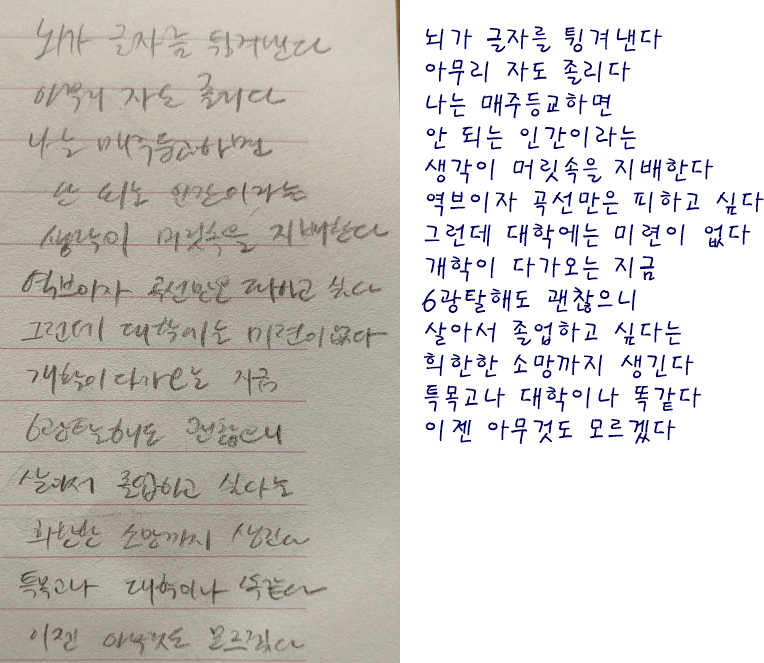 뇌가 글자를 튕겨낸다
아무리 자도 졸리다
나는 매주등교하면
안 되는 인간이라는
생각이 머릿속을 지배한다
역브이자 곡선만은 피하고 싶다
그런데 대학에는 미련이 없다
개학이 다가오는 지금
6광탈해도 괜찮으니
살아서 졸업하고 싶다는
희한한 소망까지 생긴다
특목고나 대학이나 똑같다
이젠 아무것도 모르겠다
뇌가 글자를 튕겨낸다
아무리 자도 졸리다
나는 매주등교하면
안 되는 인간이라는
생각이 머릿속을 지배한다
역브이자 곡선만은 피하고 싶다
그런데 대학에는 미련이 없다
개학이 다가오는 지금
6광탈해도 괜찮으니
살아서 졸업하고 싶다는
희한한 소망까지 생긴다
특목고나 대학이나 똑같다
이젠 아무것도 모르겠다